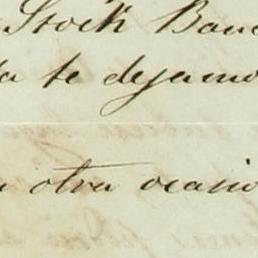 Stock Banc
ta te dejamo
a otra ocasio